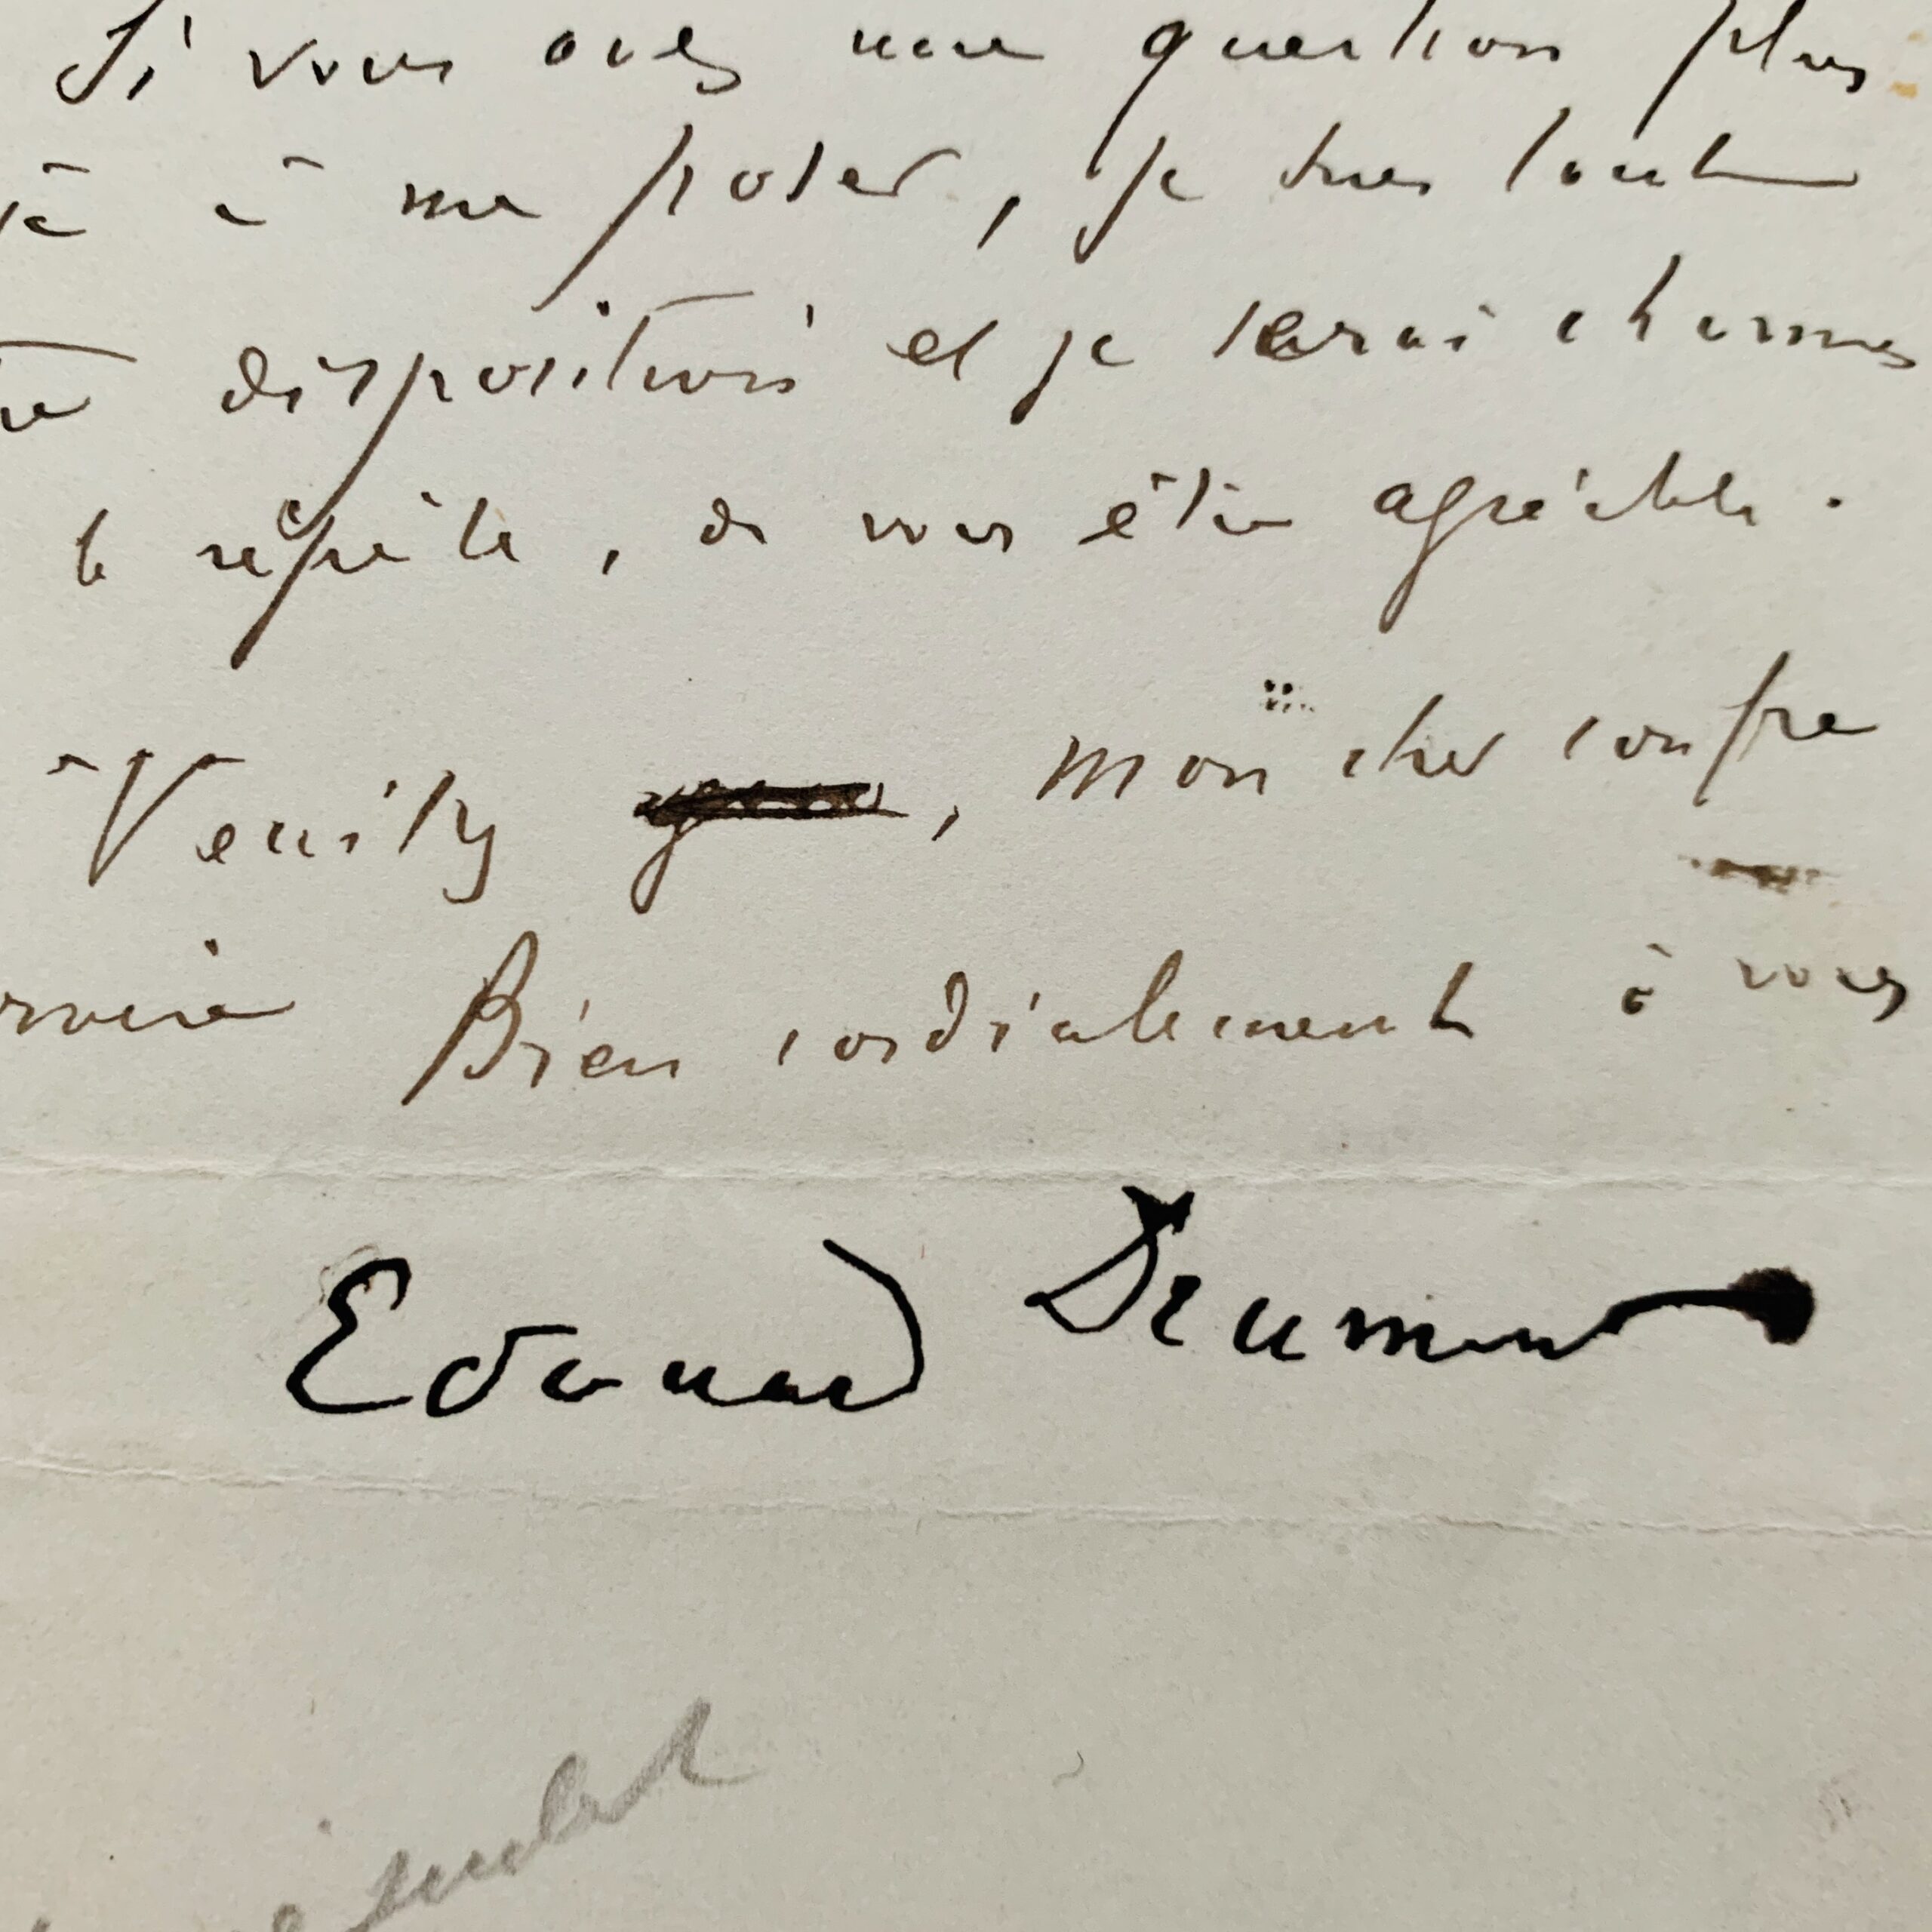 Si vous avez une question plus
à me poser, je suis toute
disposition et je serai charmé
le répète, de vous être agréable.
Veuillez, mon cher confrè
Bien cordialement à vous
Edouard Drumont